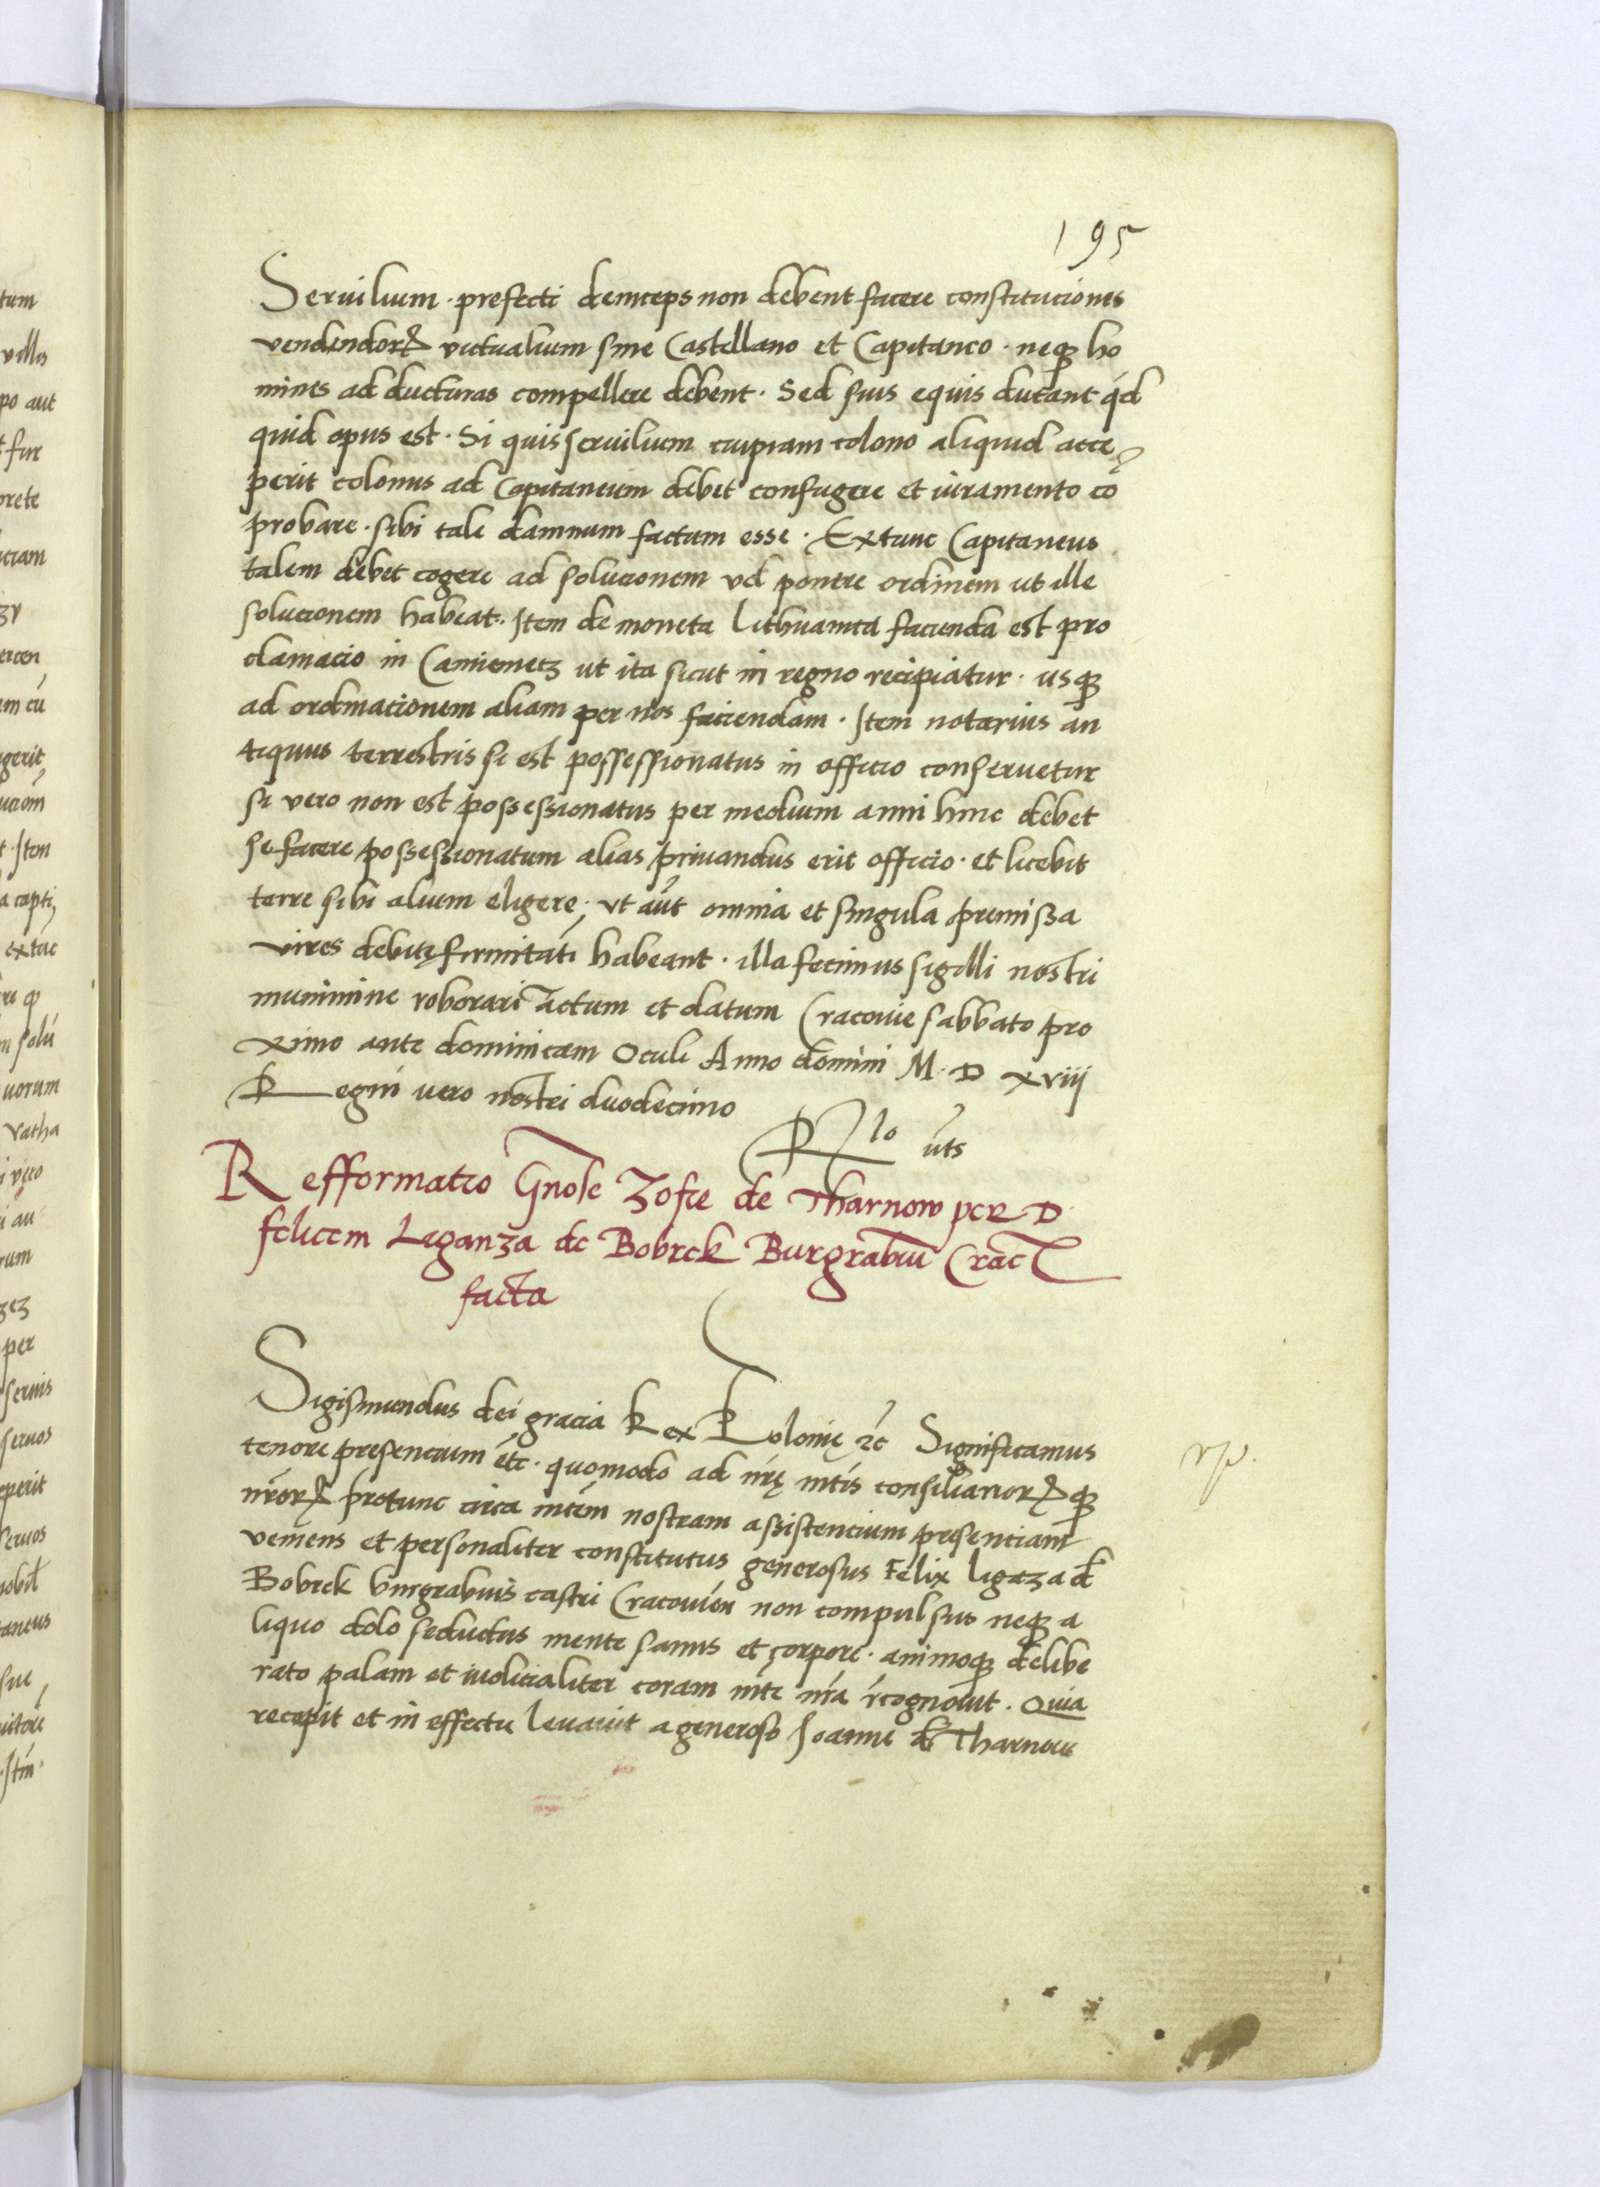 195
Seruilium · prefecti deinceps non debent facere constituciones
vendendorꝝ victualium sine Castellano et Capitaneo · neqꝫ ho
mines ad ducturas compellere debent · Sed suis equis ducant qd
quid opus est · Si quis seruilium cuipiam colono aliquid acce
perit colonus ad Capitaneum debet confugere et iuramento co
probare · sibi tale damnum factum esse · Extunc Capitaneus
talem debet cogere ad solucionem vel ponere ordinem ut ille
solucionem habeat · Item de moneta Lithuanica facienda est pro
clamacio in Camienetz ut ita sicut in regno recipiatur · usqꝫ
ad ordinacionem aliam per nos faciendam · Item notarius an
tiquus terrestris si est possessionatus in officio conseruetur
si vero non est possessionatus per medium anni hinc debet
se facere possessionatum alias priuandus erit officio · et licebit
terre sibi alium eligere · ut aut omnia et singula premissa
vires debitę firmitatis habeant · illa fecimus sigilli nostri
munimine roborari Actum et datum Cracouie sabbato pro
ximo ante dominicam Oculi Anno domini M · D xviij
Regni vero nostri duodecimo
Rlo uts
Refformatio Gnose Zofie de Tharnow per D
felicem Liganza de Bobrek Burgrabiu Crac
facta
Sigismundus dei gracia Rex Polonię ꝛc Significamus
tenore presencium etc · quomodo ad nrę mtis consiliariorꝝqꝫ
nrorꝝ protunc circa mtem nostram assistencium presenciam
veniens et personaliter constitutus generosus Felix ligaza de
Bobrek burgrabius castri Cracouien non compulsus neqꝫ a
liquo dolo seductus mente sanus et corpore · animoqꝫ delibe
rato palam et iudicialiter coram mte nra recognouit · Quia
recepit et in effectu leuauit a generoso Joanne de Tharnow